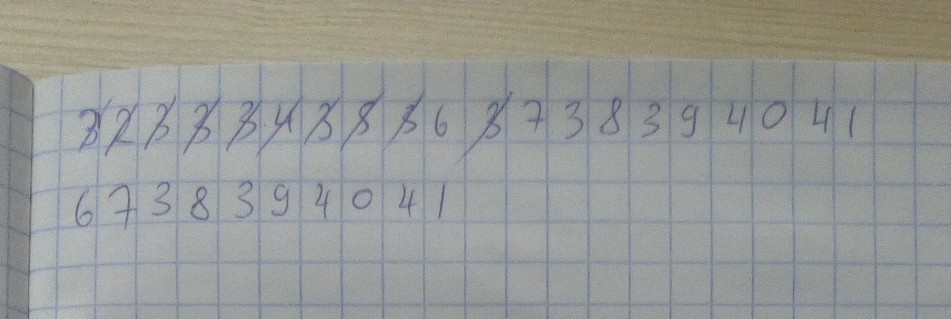 3 2 3 3 3 4 3 5 3 6 3 7 3 8 3 9 4 0 4 1
6 7 3 8 3 9 4 0 4 1